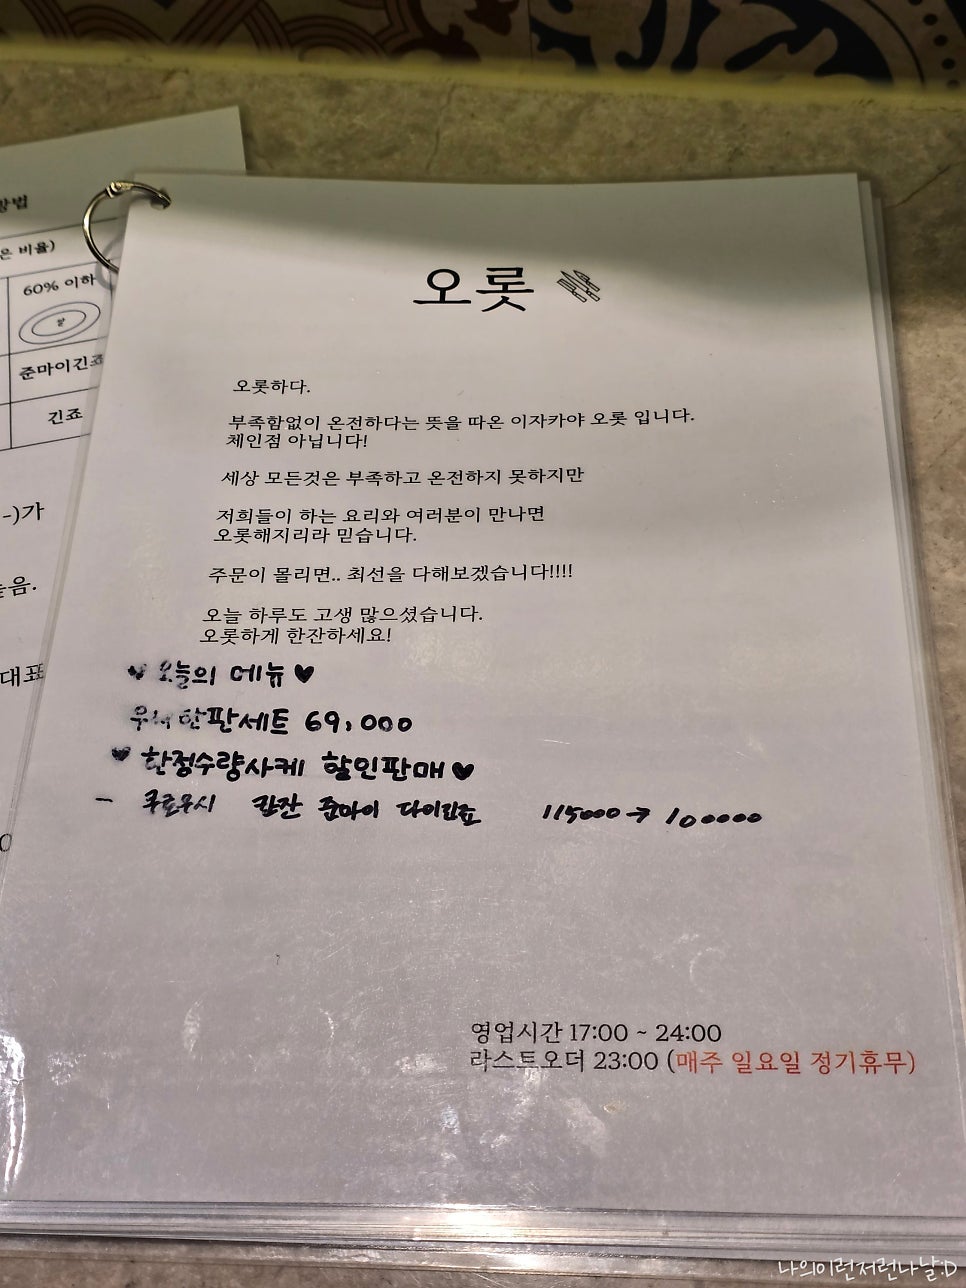 방법
은 비율)
60% 이하
쌀
준마이긴죠
긴죠
-)가
음.
대표
오롯
오롯하다.
부족함없이 온전하다는 뜻을 따온 이자카야 오롯 입니다.
체인점 아닙니다!
세상 모든것은 부족하고 온전하지 못하지만
저희들이 하는 요리와 여러분이 만나면
오롯해지리라 믿습니다.
주문이 몰리면.. 최선을 다해보겠습니다!!!!
오늘 하루도 고생 많으셨습니다.
오롯하게 한잔하세요!
♥ 오늘의 메뉴 ♥
한판세트 69,000
♥ 한정수량사케 할인판매 ♥
- 쿠로우시 준마이 다이긴죠 115000 → 100000
영업시간 17:00 ~ 24:00
라스트오더 23:00 (매주 일요일 정기휴무)
나의이런저런나날:D